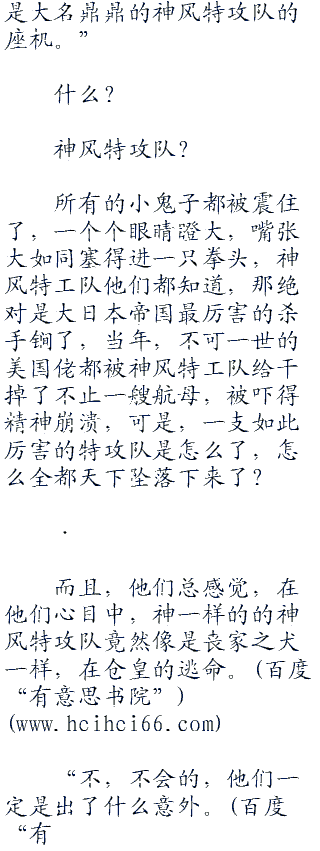 是大名鼎鼎的神风特攻队的
座机。”
什么？
神风特攻队？
所有的小鬼子都被震住
了，一个个眼睛瞪大，嘴张
大如同塞得进一只拳头，神
风特工队他们都知道，那绝
对是大日本帝国最厉害的杀
手锏了，当年，不可一世的
美国佬都被神风特工队给干
掉了不止一艘航母，被吓得
精神崩溃，可是，一支如此
厉害的特攻队是怎么了，怎
么全都天下坠落下来了？
．
而且，他们总感觉，在
他们心目中，神一样的的神
风特攻队竟然像是丧家之犬
一样，在仓皇的逃命。(百度
“有意思书院”)
(www.hcihci66.com)
“不，不会的，他们一
定是出了什么意外。(百度
“有